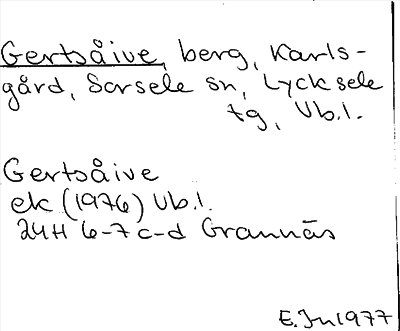 Gertsåive, berg, Karls-
gård, Sorsele sn, Lycksele
tg, Vb.l.
Gertsåive
ek (1976) Vb.l.
24H 6-7 c-d Grannäs
E.Jn 1977